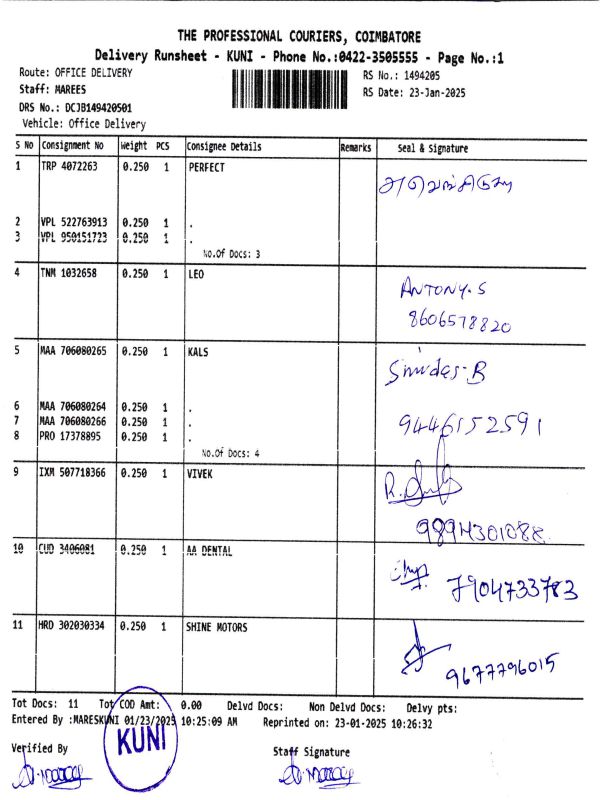 THE PROFESSIONAL COURIERS, COIMBATORE
Delivery Runsheet - KUNI - Phone No.:0422-3505555 - Page No.:1
Route: OFFICE DELIVERY RS No.: 1494205
Staff: MAREES RS Date: 23-Jan-2025
DRS No.: DCJB149420501
Vehicle: Office Delivery
S No Consignment No Weight PCS Consignee Details Remarks Seal & Signature
1 TRP 4072263 0.250 1 PERFECT
2 VPL 522763913 0.250 1 .
3 VPL 950151723 0.250 1 .
No.Of Docs: 3
4 TNM 1032658 0.250 1 LEO
ANTONY.S
8606578820
5 MAA 706080265 0.250 1 KALS
6 MAA 706080264 0.250 1 .
7 MAA 706080266 0.250 1 .
8 PRO 17378895 0.250 1 .
9446152591
No.Of Docs: 4
9 IXM 507718366 0.250 1 VIVEK
10 CUD 3406081 0.250 1 AA DENTAL
7904733783
11 HRD 302030334 0.250 1 SHINE MOTORS
9677796015
Tot Docs: 11 Tot COD Amt: 0.00 Delvd Docs: Non Delvd Docs: Delvy pts:
Entered By :MARESKUNI 01/23/2025 10:25:09 AM Reprinted on: 23-01-2025 10:26:32
KUNI
Verified By Staff Signature